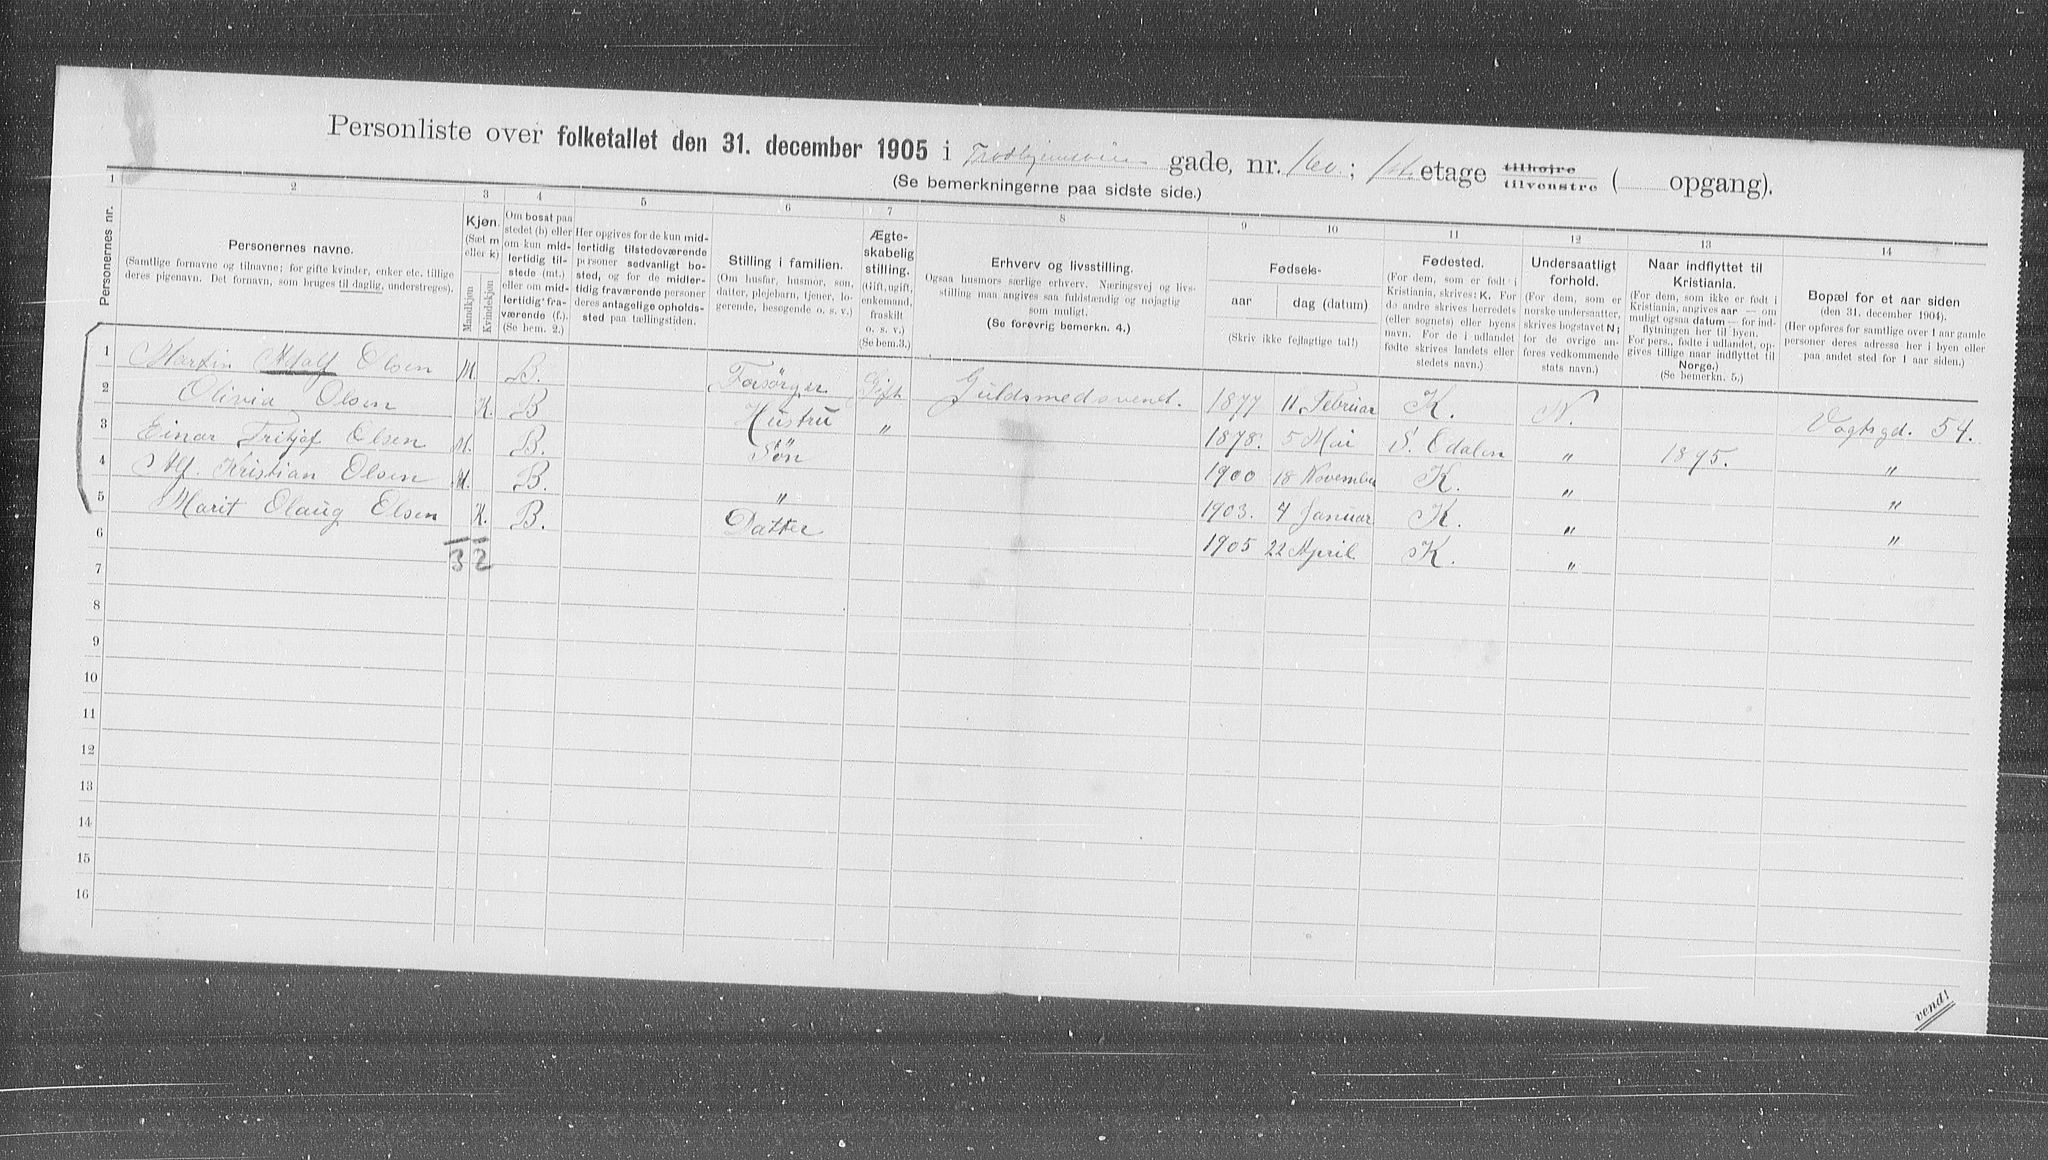 Personliste over folketallet den 31. december 1905 i Trodhjemsveien gade, nr. 160.; 1ste etage tilhøjre tilvenstre ( opgang).
(Se bemerkningerne paa sidste side.)
1 2 3 4 5 6 7 8 9 10 11 12 13 14
Personernes nr.
Personernes navne.
(Samtlige fornavne og tilnavne; for gifte kvinder, enker etc. tillige
deres pigenavn. Det fornavn, som bruges til daglig, understreges).
Kjøn.
(Sæt m
eller k)
Mandkjøn
Kvindekjøn
Om bosat paa
stedet (b) eller
om kun mid-
lertidig til-
stede (mt.)
eller om mid-
lertidig fra-
værende (f.).
(Se bem. 2.)
Her opgives for de kun mid-
lertidig tilstedeværende
personer sedvanligt bo-
sted, og for de midler-
tidig fraværende personer
deres antagelige opholds-
sted paa tællingstiden.
Stilling i familien.
(Om husfar, husmor, søn,
datter, plejebarn, tjener, lo-
gerende, besøgende o. s. v.)
Ægte-
skabelig
stilling.
(Gift, ugift,
enkemand,
fraskilt
o. s. v.)
(Se bem.3.)
Erhverv og livsstilling.
Ogsaa husmors særlige erhverv. Næringsvej og livs-
stilling maa angives saa fuldstændig og nøjagtig
som muligt.
(Se forøvrig bemerkn. 4.)
Fødsels-
aar
dag (datum)
(Skriv ikke fejlagtige tal!)
Fødested.
(For dem, som er født i
Kristiania, skrives: K. For
de andre skrives herredets
(eller sognets) eller byens
navn. For de i udlandet
fødte skrives landets eller
stedets navn.)
Undersaatligt
forhold.
(For dem, som er
norske undersaatter,
skrives bogstavet N;
for de øvrige an-
føres vedkommende
stats navn.)
Naar indflyttet til
Kristiania.
(For dem, som ikke er født i
Kristiania, angives aar — om
muligt ogsaa datum — for ind-
flytningen her til byen.
For pers., fødte i udlandet, op-
gives tillige naar indflyttet til
Norge.)
(Se bemerkn. 5.)
Bopæl for et aar siden
(den 31. december 1904).
(Her opføres for samtlige over 1 aar gamle
personer deres adresse her i byen eller
paa andet sted for 1 aar siden.)
1 Martin Adolf Olsen M. B. Forsørger Gift Guldsmedsvend. 1877 11 Februar K. N. Vogtsgd. 54.
2 Olivia Olsen K. B Hustru " 1878. 5 Mai S. Edalen " 1895. "
3 Einar Fritjof Olsen M. B. Søn 1900 18 November K. " "
4 Alf. Kristian Olsen M. B. " 1903. 7 Januar K. " "
5 Marit Olaug Elsen K. B. Datter 1905 22 April K. "
6 3 2
7
8
9
10
11
12
13
14
15
16
vend!